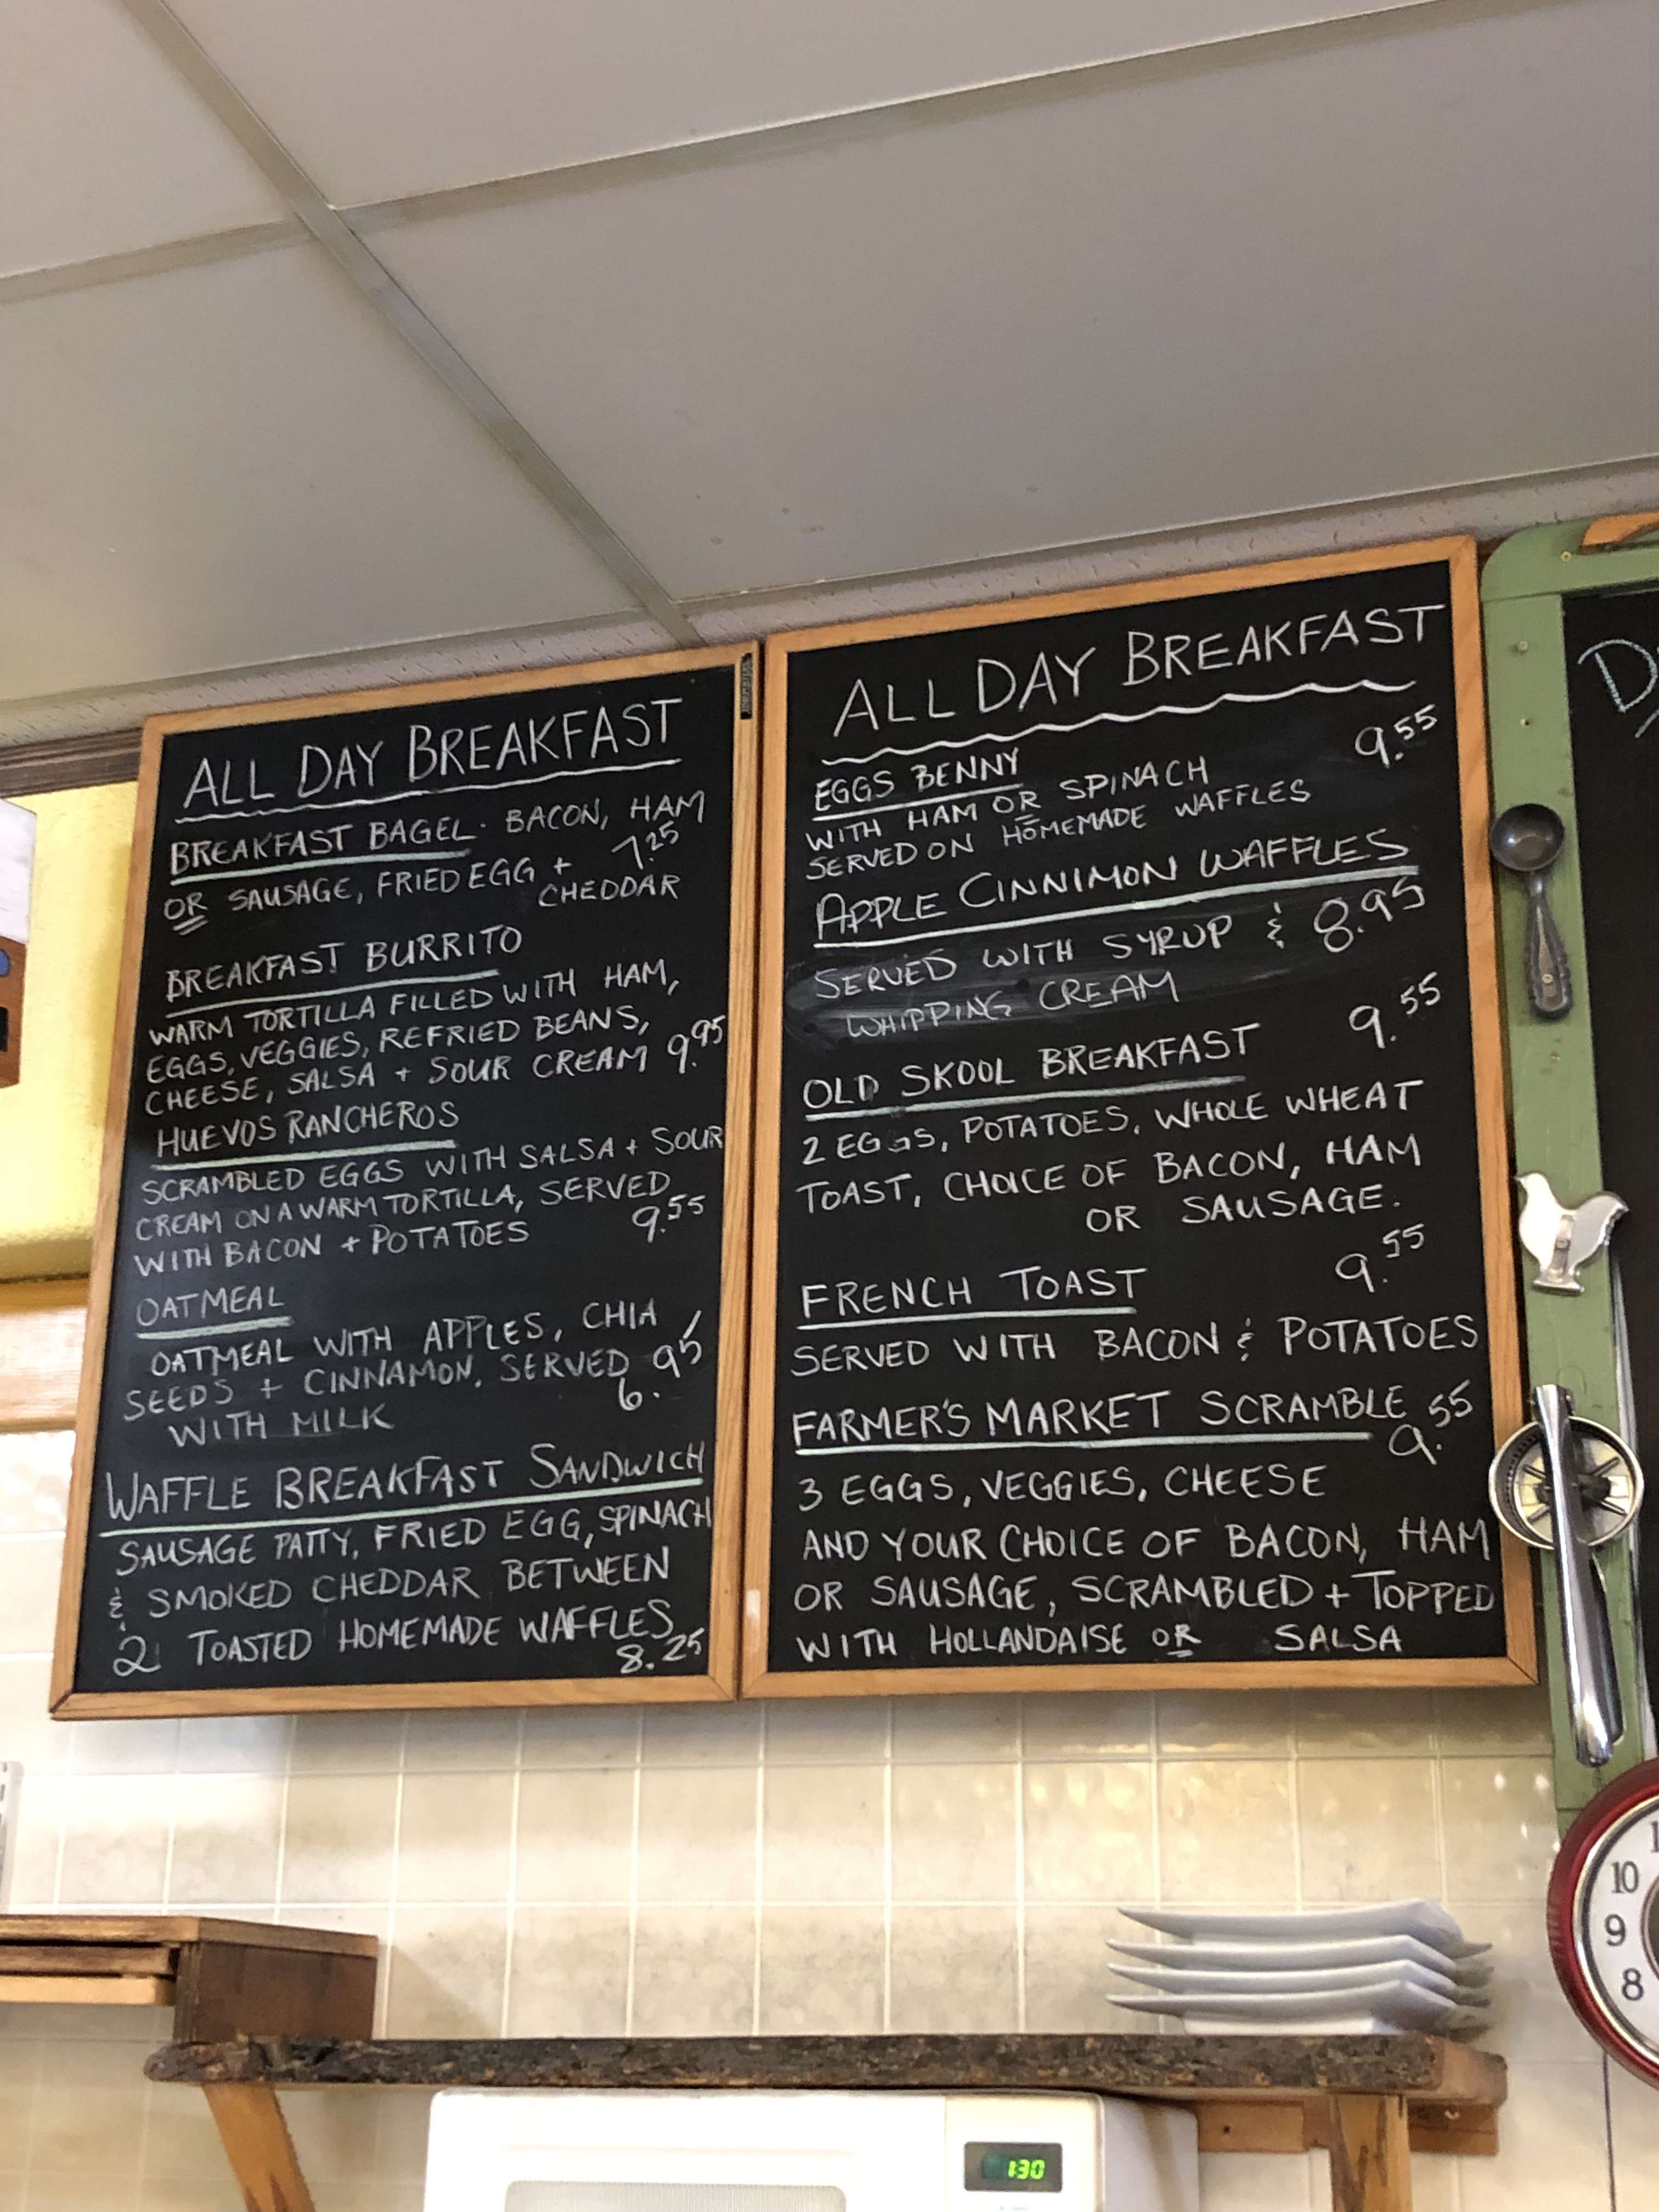 ALL DAY BREAKFAST
BREAKFAST BAGEL. BACON, HAM
7.25
OR SAUSAGE, FRIED EGG +
CHEDDAR
BREAKFAST BURRITO
WARM TORTILLA FILLED WITH HAM,
EGGS, VEGGIES, REFRIED BEANS,
CHEESE, SALSA + SOUR CREAM 9.95
HUEVOS RANCHEROS
SCRAMBLED EGGS WITH SALSA + SOUR
CREAM ON A WARM TORTILLA, SERVED
WITH BACON + POTATOES 9.55
OATMEAL
OATMEAL WITH APPLES, CHIA
SEEDS + CINNAMON. SERVED 6.95
WITH MILK
WAFFLE BREAKFAST SANDWICH
SAUSAGE PATTY, FRIED EGG, SPINACH
& SMOKED CHEDDAR BETWEEN
2 TOASTED HOMEMADE WAFFLES
8.25
ALL DAY BREAKFAST
EGGS BENNY 9.55
WITH HAM OR SPINACH
SERVED ON HOMEMADE WAFFLES
APPLE CINNIMON WAFFLES
SERVED WITH SYRUP & 8.95
WHIPPING CREAM
OLD SKOOL BREAKFAST 9.55
2 EGGS, POTATOES, WHOLE WHEAT
TOAST, CHOICE OF BACON, HAM
OR SAUSAGE.
FRENCH TOAST 9.55
SERVED WITH BACON & POTATOES
FARMER'S MARKET SCRAMBLE 9.55
3 EGGS, VEGGIES, CHEESE
AND YOUR CHOICE OF BACON, HAM
OR SAUSAGE, SCRAMBLED + TOPPED
WITH HOLLANDAISE OR SALSA
10
9
8
1:30